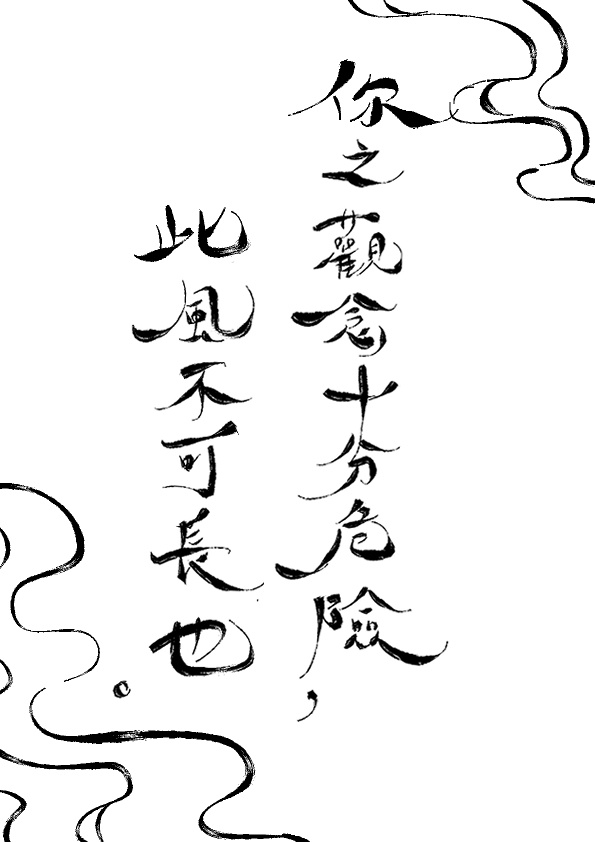 你之觀念十分危險，
此風不可長也。